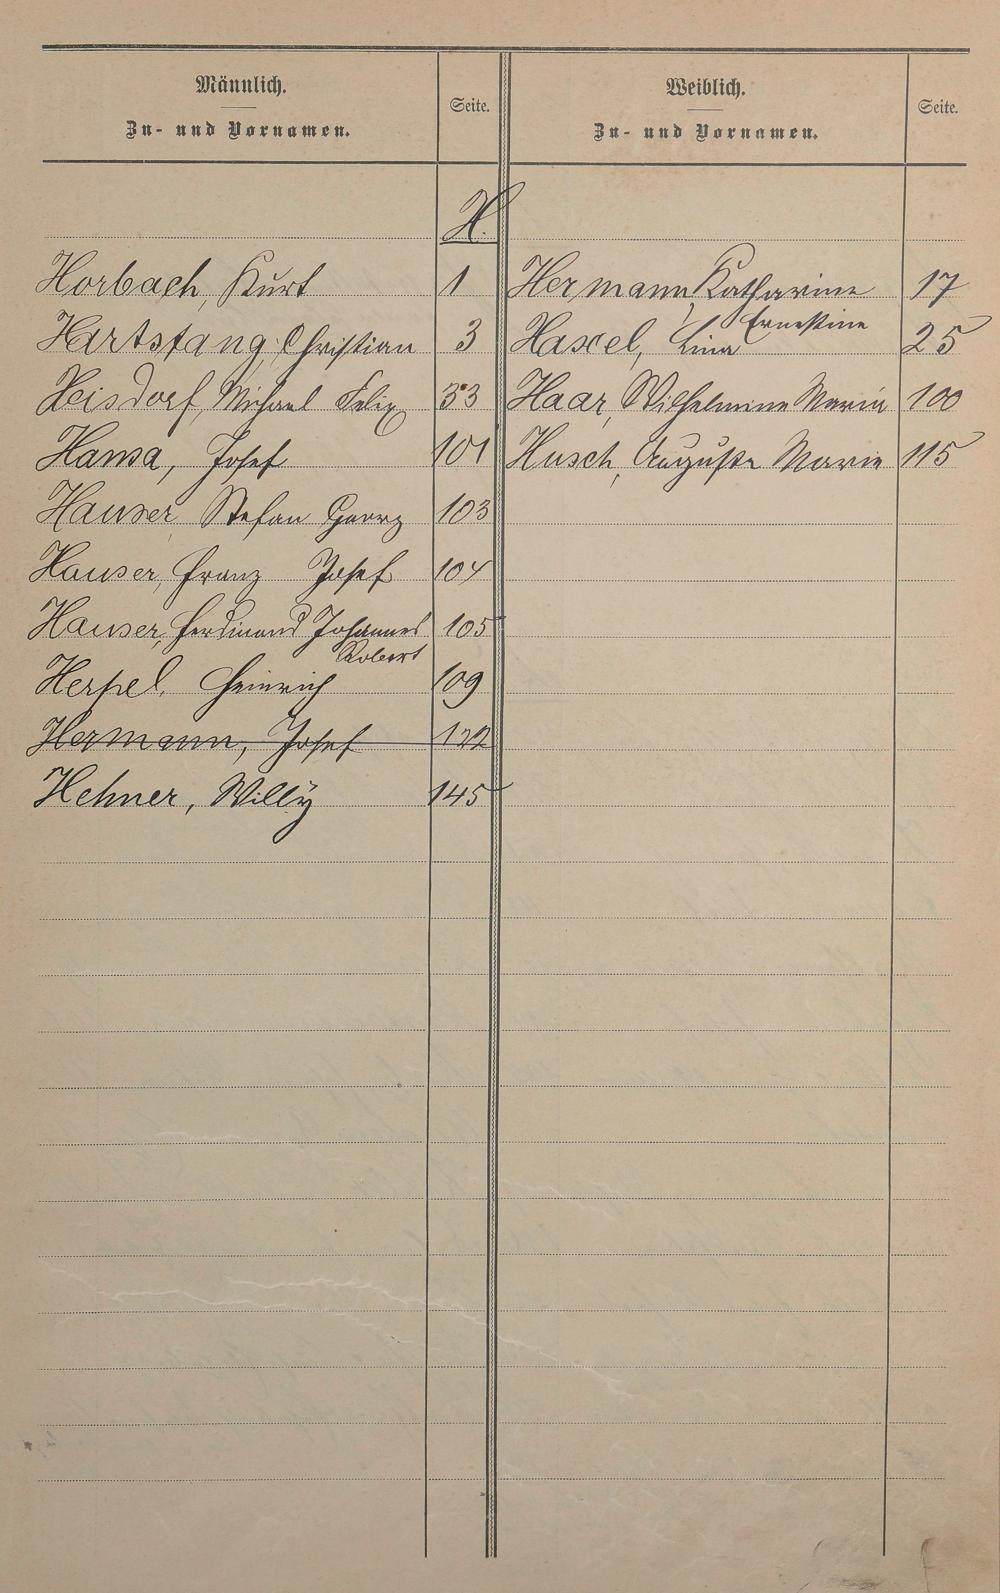 Männlich.
Zu- und Vornamen.
Seite.
Weiblich.
Zu- und Vornamen.
Seite.
H.
Horbach, Kurt 1
Hermann, Katharine 17
Hartstang, Christian 3
Haxel, Lina Ernestine 25
Heisdorf, Michael Felix 33
Haar, Wilhelmine Maria 100
Hansa, Josef 101
Husch, Auguste Marie 115
Hauser, Stefan Georg 103
Hauser, Franz Josef 104
Hauser, Ferdinand Johannes 105
Robert
Herpel, Heinrich 109
Hermann, Josef 122
Hehner, Willy 145